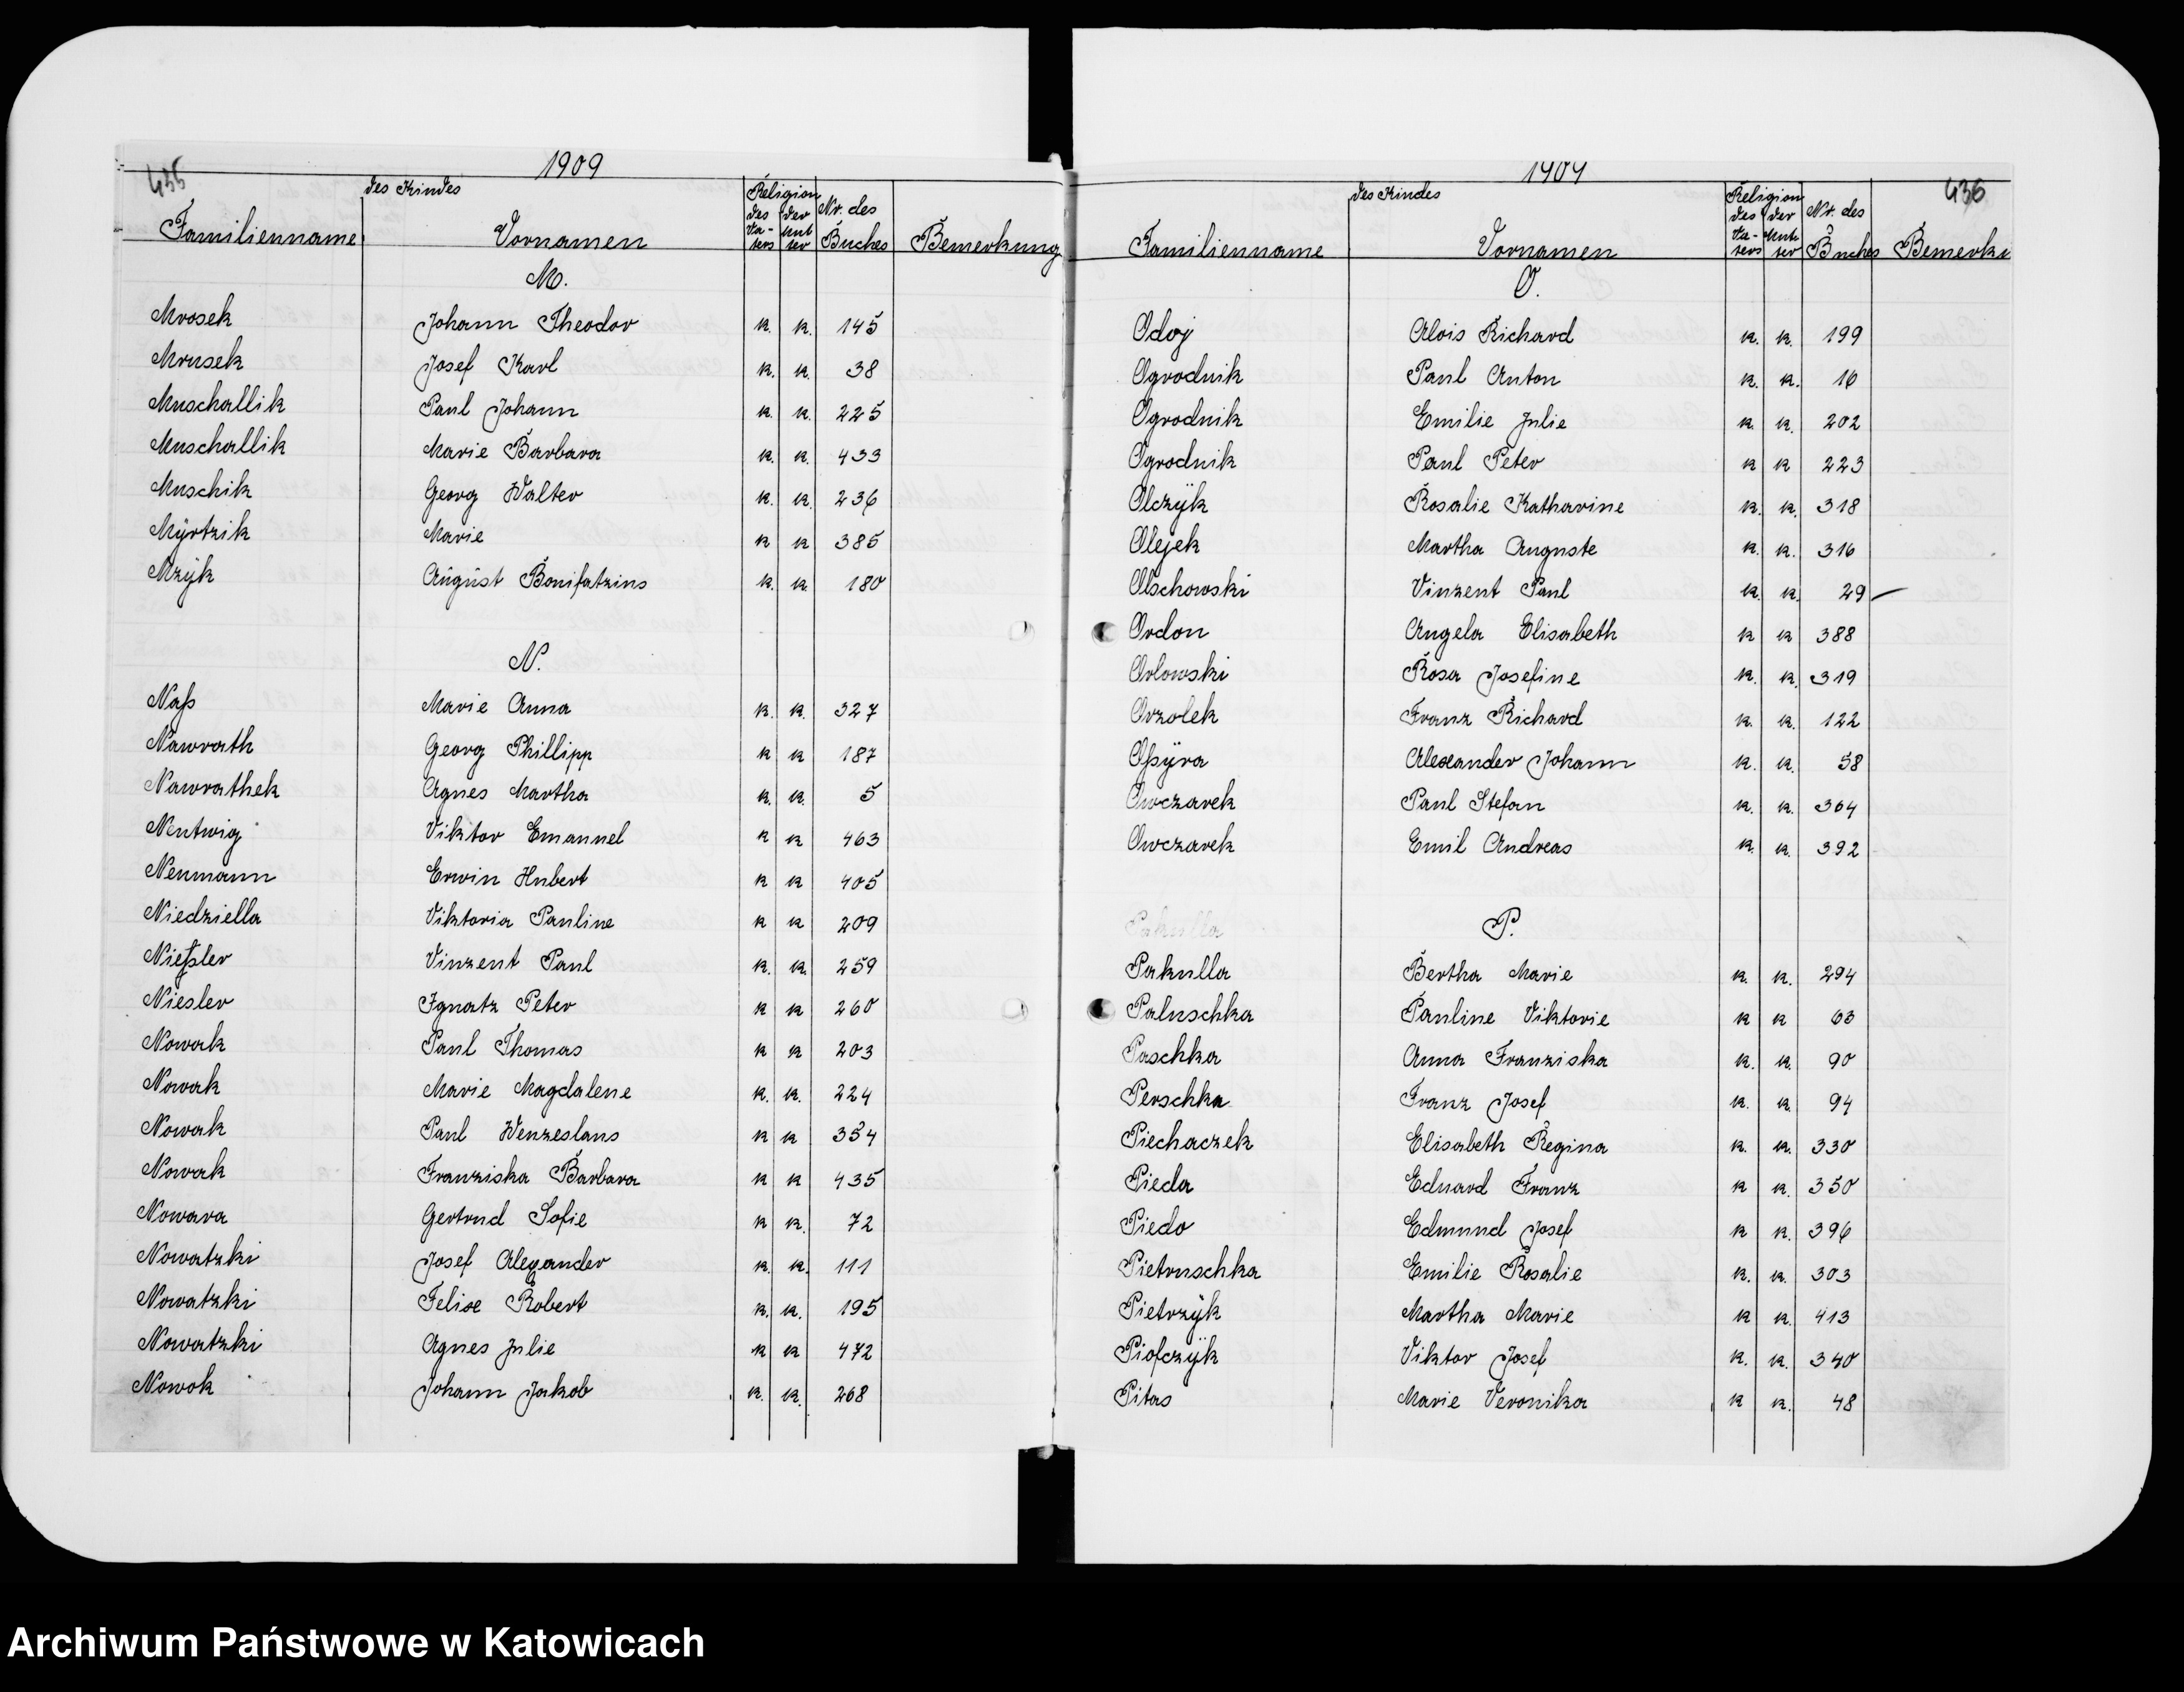 1909
435
des Kindes
Familienname Vornamen Religion des Vaters der Mutter Nr. des Buches Bemerkung
M.
Mrosek Johann Theodor k. k. 145
Mrusek Josef Karl k. k. 38
Muschallik Paul Johann k. k. 225
Muschallik Marie Barbara k. k. 433
Muschik Georg Walter k. k. 236
Myrtzik Marie k k 385
Mzyk August Bonifatzius k. k. 180
N.
Naß Marie Anna k. k. 327
Nawrath Georg Phillipp k k 187
Nawrathek Agnes Martha k. k. 5
Nentwig Viktor Emanuel k k 463
Neumann Erwin Hubert k k 405
Niedziella Viktoria Pauline k k 209
Nießler Vinzent Paul k. k. 259
Niesler Ignatz Peter k k 260
Nowak Paul Thomas k k 203
Nowak Marie Magdalene k. k. 224
Nowak Paul Wenzeslaus k k 354
Nowak Franziska Barbara k k 435
Nowara Gertrud Sofie k k. 72
Nowatzki Josef Alexander k. k. 111
Nowatzki Felix Robert k. k. 195
Nowatzki Agnes Julie k k 472
Nowok Johann Jakob k. k. 268
1909
436
des Kindes
Familienname Vornamen Religion des Vaters der Mutter Nr. des Buches Bemerku
O.
Odoj Alois Richard k. k. 199
Ogrodnik Paul Anton k. k. 16
Ogrodnik Emilie Julie k. k. 202
Ogrodnik Paul Peter k k 223
Olczyk Rosalie Katharine k. k. 318
Olejek Martha Auguste k. k. 316
Olschowski Vinzent Paul k. k. 29
Ordon Angela Elisabeth k k 388
Orlowski Rosa Josefine k. k. 319
Orzolek Franz Richard k. k. 122
Oßyra Alexander Johann k. k. 58
Owczarek Paul Stefan k. k. 364
Owczarek Emil Andreas k. k. 392
Pakulla P.
Pakulla Bertha Marie k. k. 294
Paluschka Pauline Viktorie k k 63
Paschka Anna Franziska k. k. 90
Perschka Franz Josef k. k 94
Piechaczek Elisabeth Regina k. k. 330
Pieda Eduard Franz k k. 350
Piedo Edmund Josef k k. 396
Pietruschka Emilie Rosalie k. k. 303
Pietrzyk Martha Marie k k. 413
Piofczyk Viktor Josef k. k. 340
Pitas Marie Veronika k k. 48
Archiwum Państwowe w Katowicach